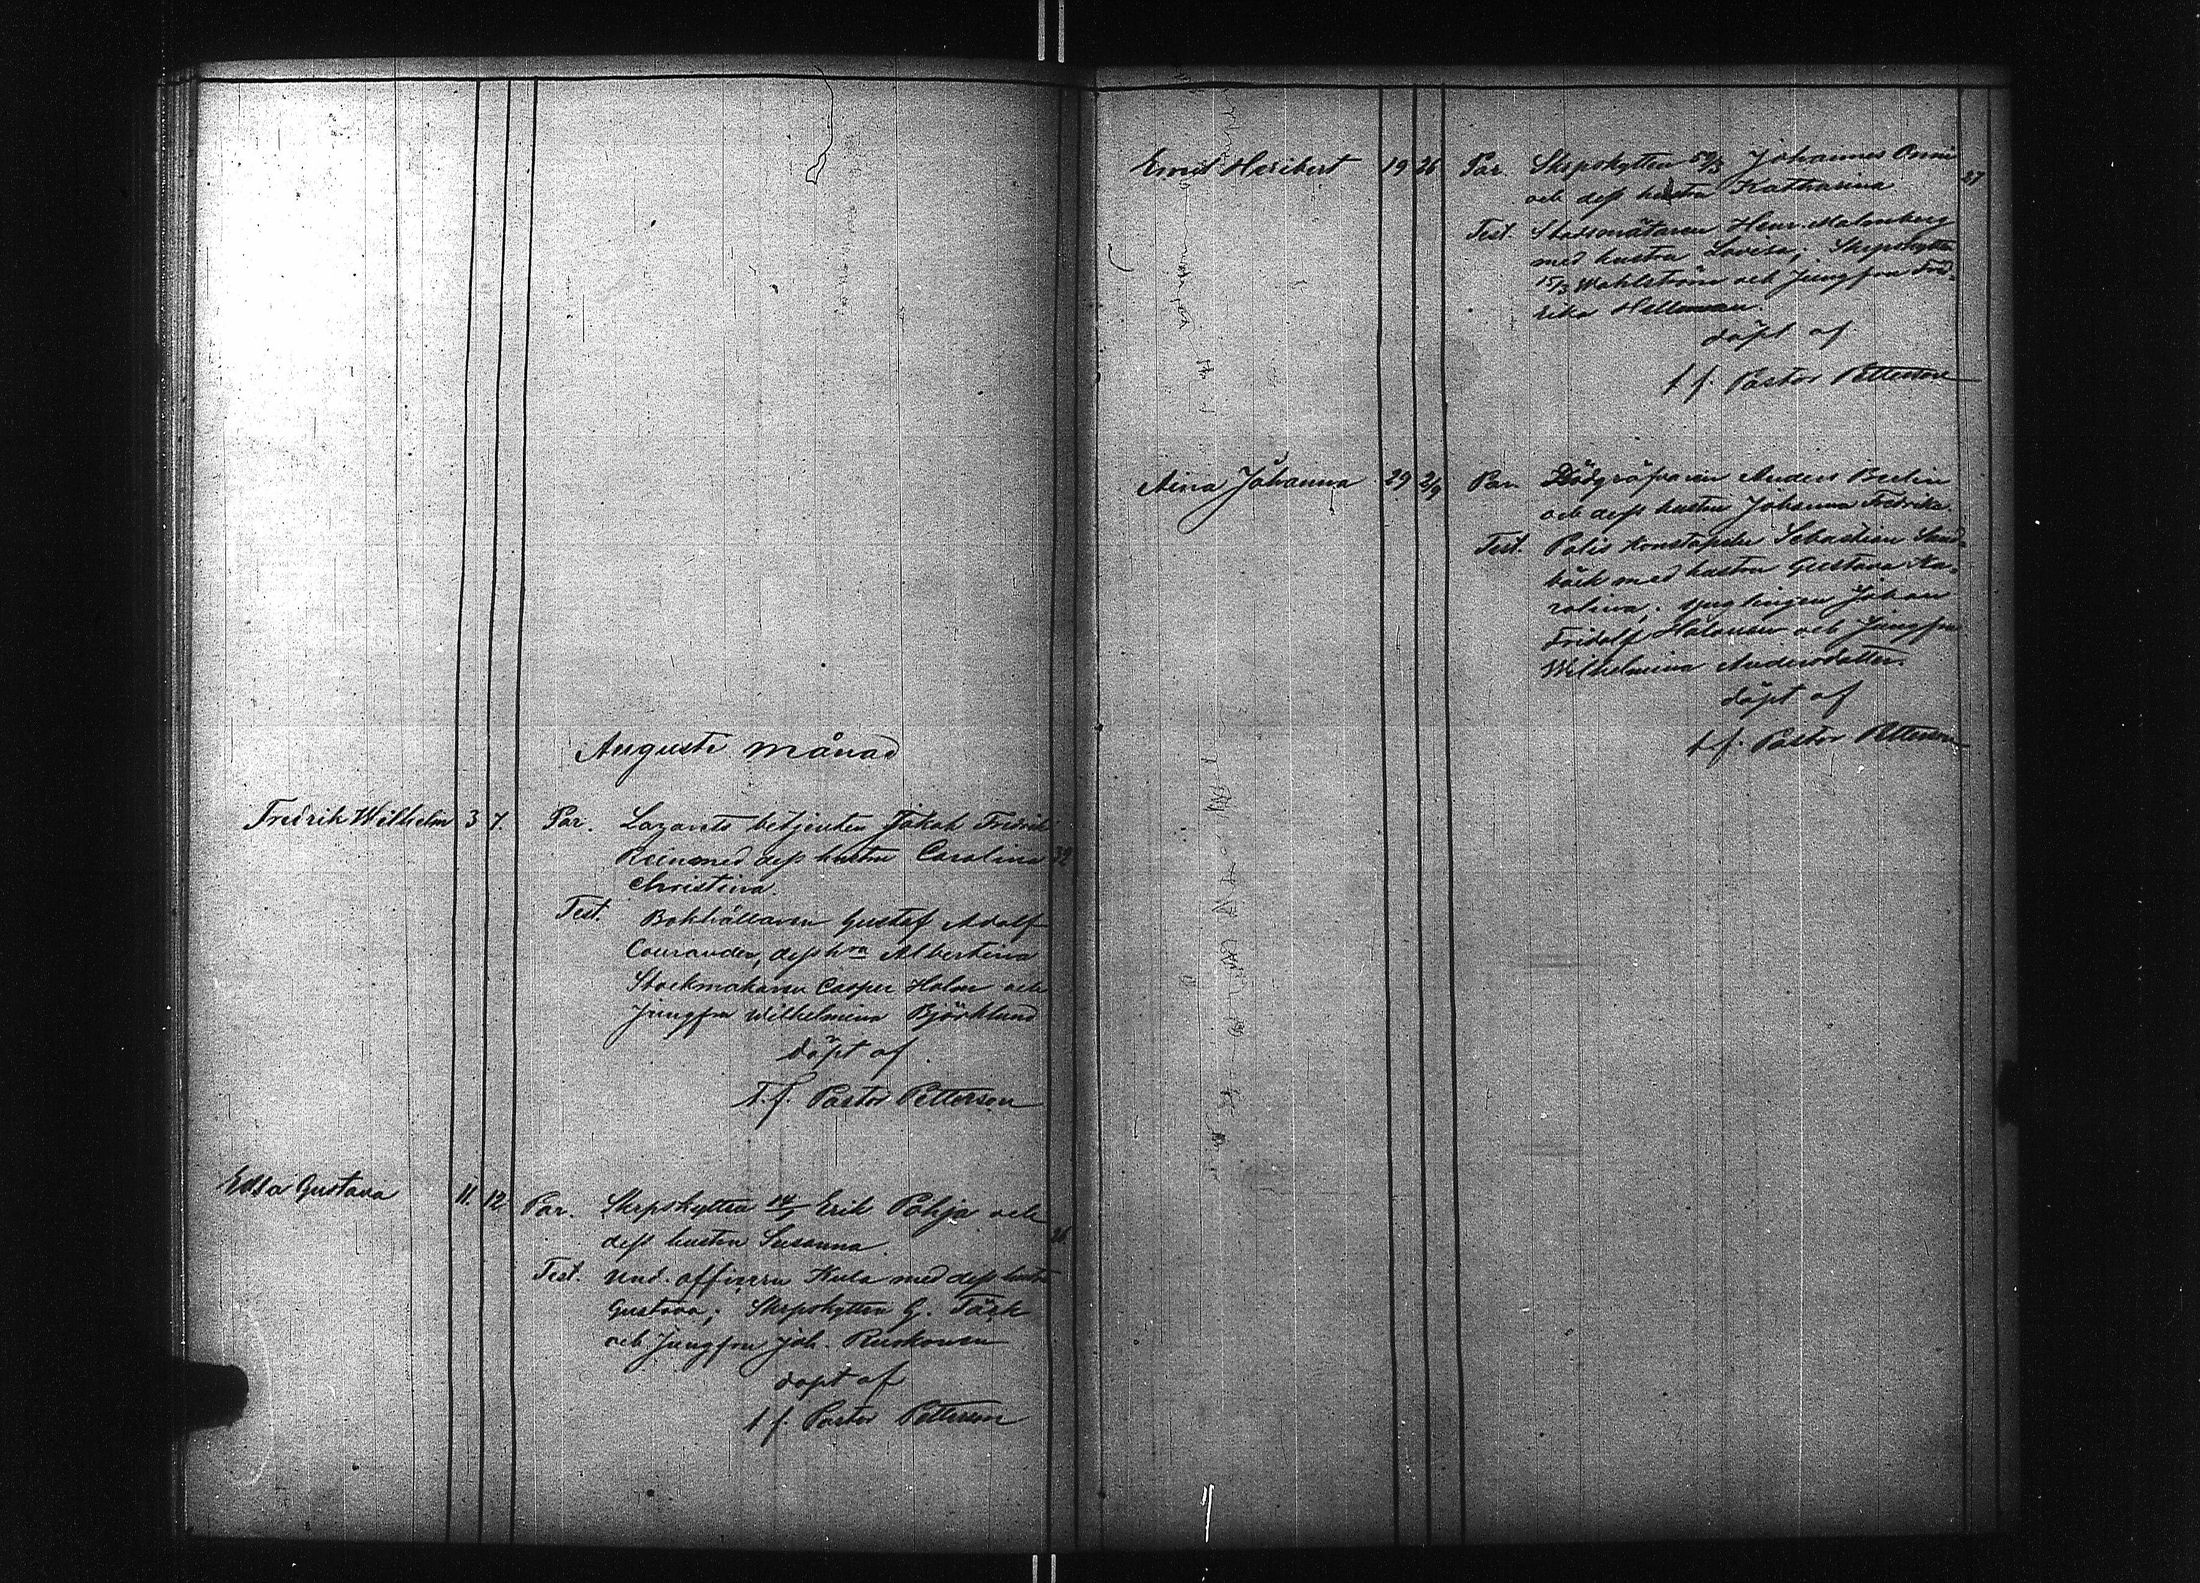 Augusti månad
Fredrik Wilhelm 3 7. Par. Lazarets betjenten Jakob Fredrik
Rein med dess hustru Carolina 32
Christina.
Test. Bokhållaren Gustaf Adolf
Courander, dess h:ru Albertina
Stockmakaren Casper Holm och
Jungfru Wilhelmina Björklund
döpt af
T. f. Pastor Petterson
Edla Gustava 11. 12. Par. Skrpskytten Erik Pohja och
dess hustru Susanna. 26
Test. Und. officern Kula med dess hustru
Gustava; Skrpskytten G. Täck
och Jungfru Joh. Ruskonen
döpt af
t. f. Pastor Petterson
Emil Heribert 19 26 Par. Skrpskytten 50/3 Johannes Onni
och dess hustru Katharina 27
Test. Henr. Malmberg
med hustru Lovisa; Skrpskytten
15/3 Wahlström och Jungfru Fred-
rika Helleman.
döpt af
t. f. Pastor Petterson
Aina Johanna 29 2/9 Par. Dödgräfvaren Anders Berlin
och dess hustru Johanna Fredrika.
Test. Polis konstapeln Sebastian Sand-
bäck med hustru Gustava Ka-
rolina; ynglingen Johan
Fridolf Malonen och Jungfru
Wilhelmina Andersdotter.
döpt af
t. f. Pastor Petterson